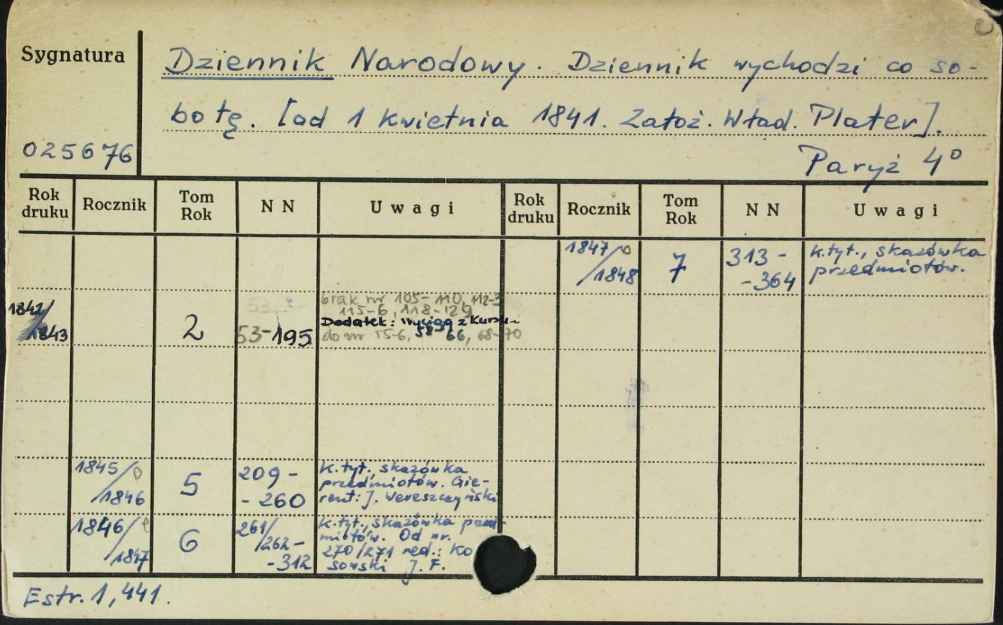 Sygnatura
Dziennik Narodowy. Dziennik wychodzi co so-
botę. [od 1 kwietnia 1841. Założ. Wład. Plater].
025676
Paryż 4°
Rok druku Rocznik Tom Rok NN Uwagi Rok druku Rocznik Tom Rok NN Uwagi
1847/1848 7 313-
-364 k.tyt., skazówka
przedmiotów.
1842/1843 2 53-195 brak nr 105-110, 112-3
115-6, 118-129
Dodatek: Wyciąg z
do nr 55-6, 58, 66, 68-70
1845/1846 5 209-
-260 k.tyt., skazówka
przedmiotów. Gie-
rent: J. Wereszczyński
1846/1847 6 261/262-
-312 k.tyt., skazówka przed-
miotów. Od nr.
270/271 red.: Ko
sowski J. F.
Estr. 1, 441.